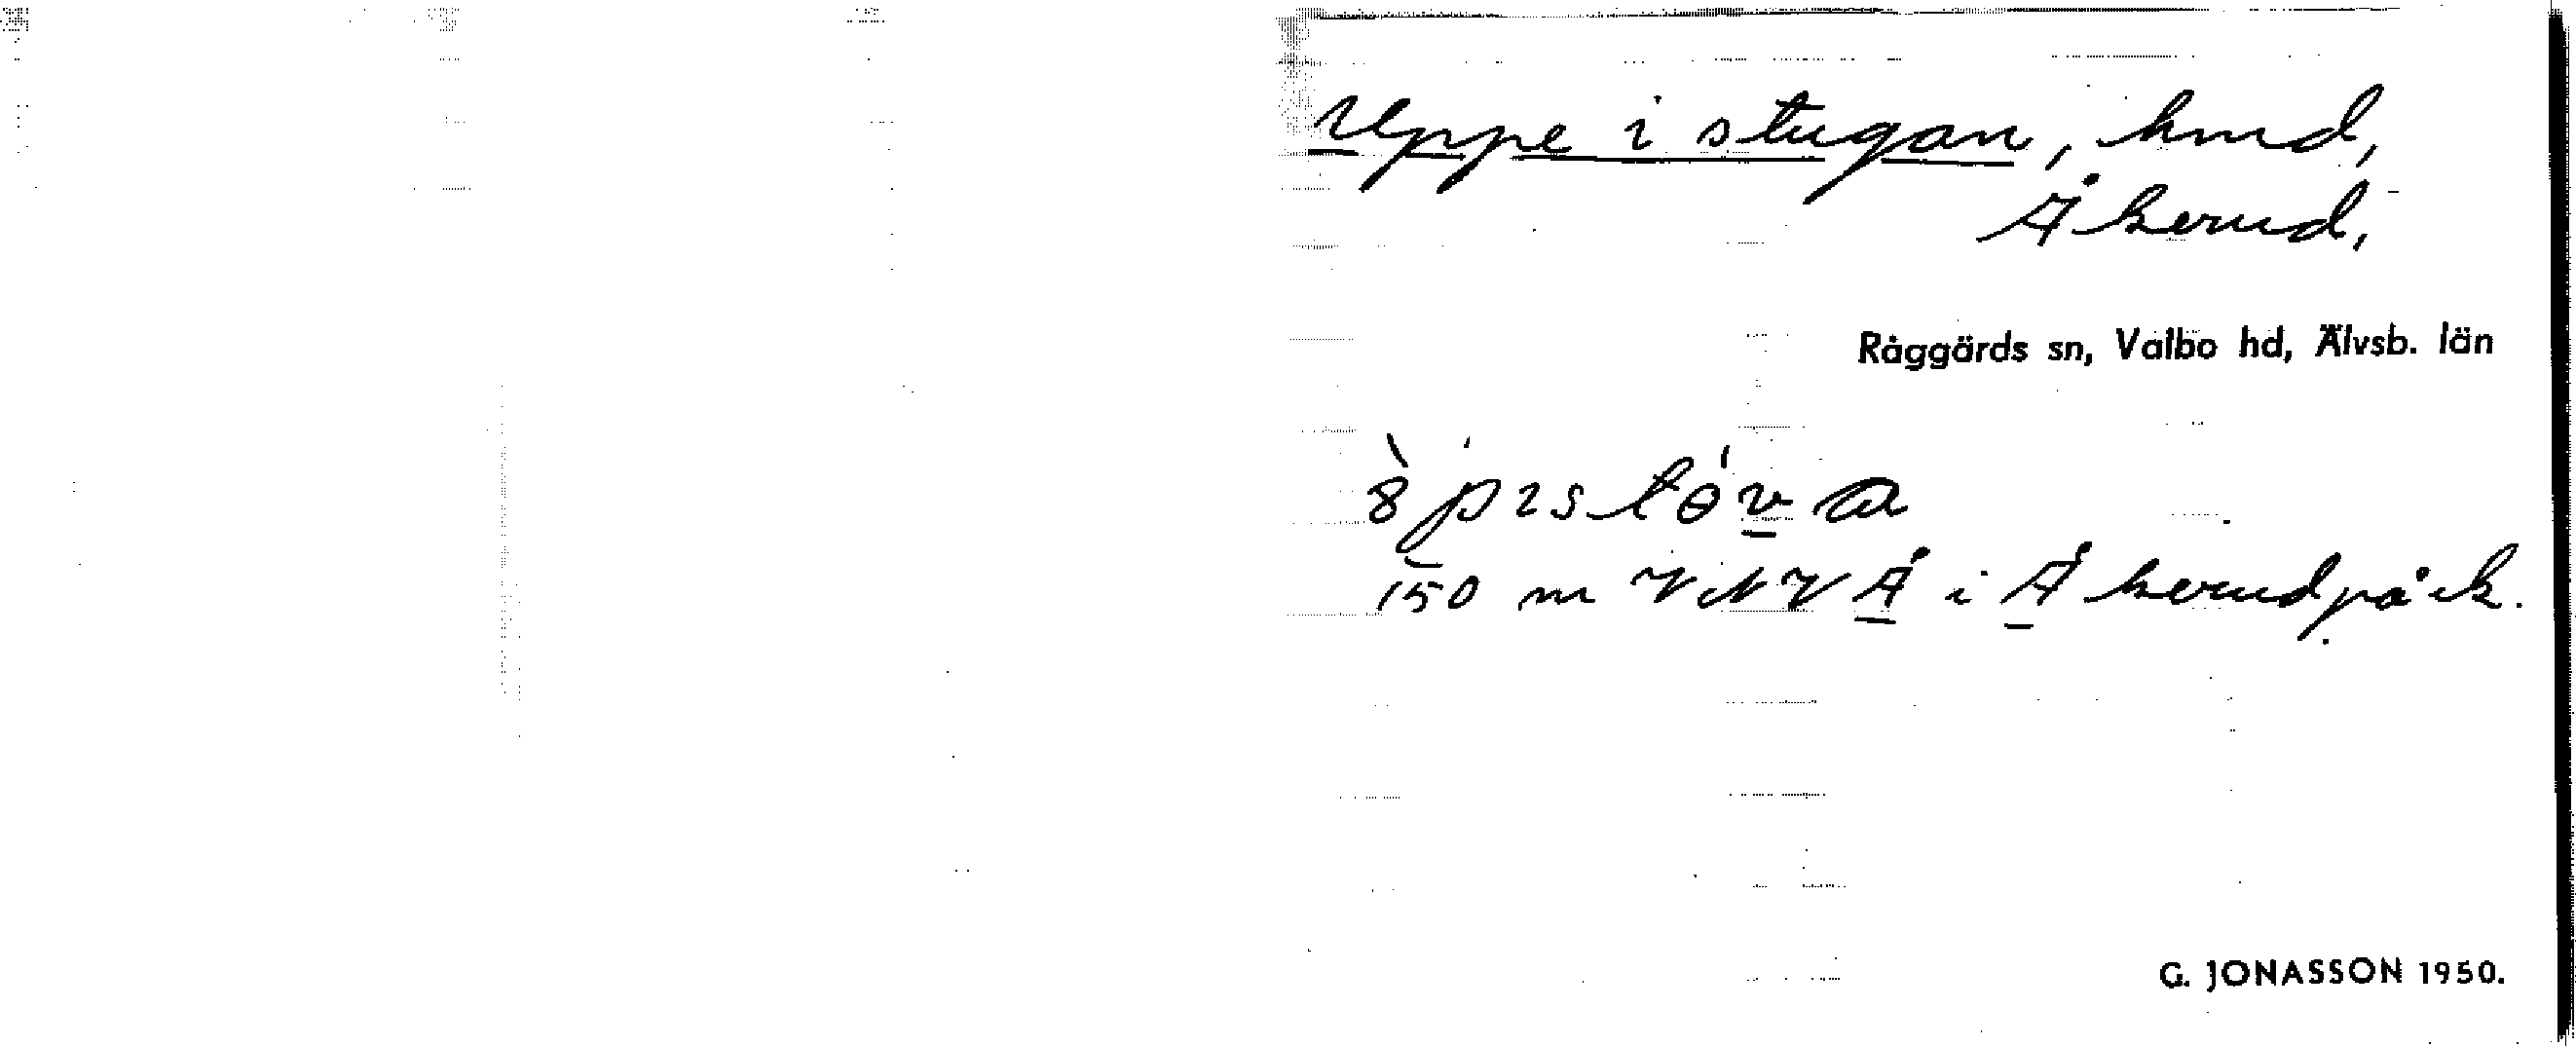 Uppe i stugan, hmd,
Åkerud,
Råggärds sn, Valbo hd, Älvsb. län
150 m VNV Å i Åkerud på ek.
G. JONASSON 1950.